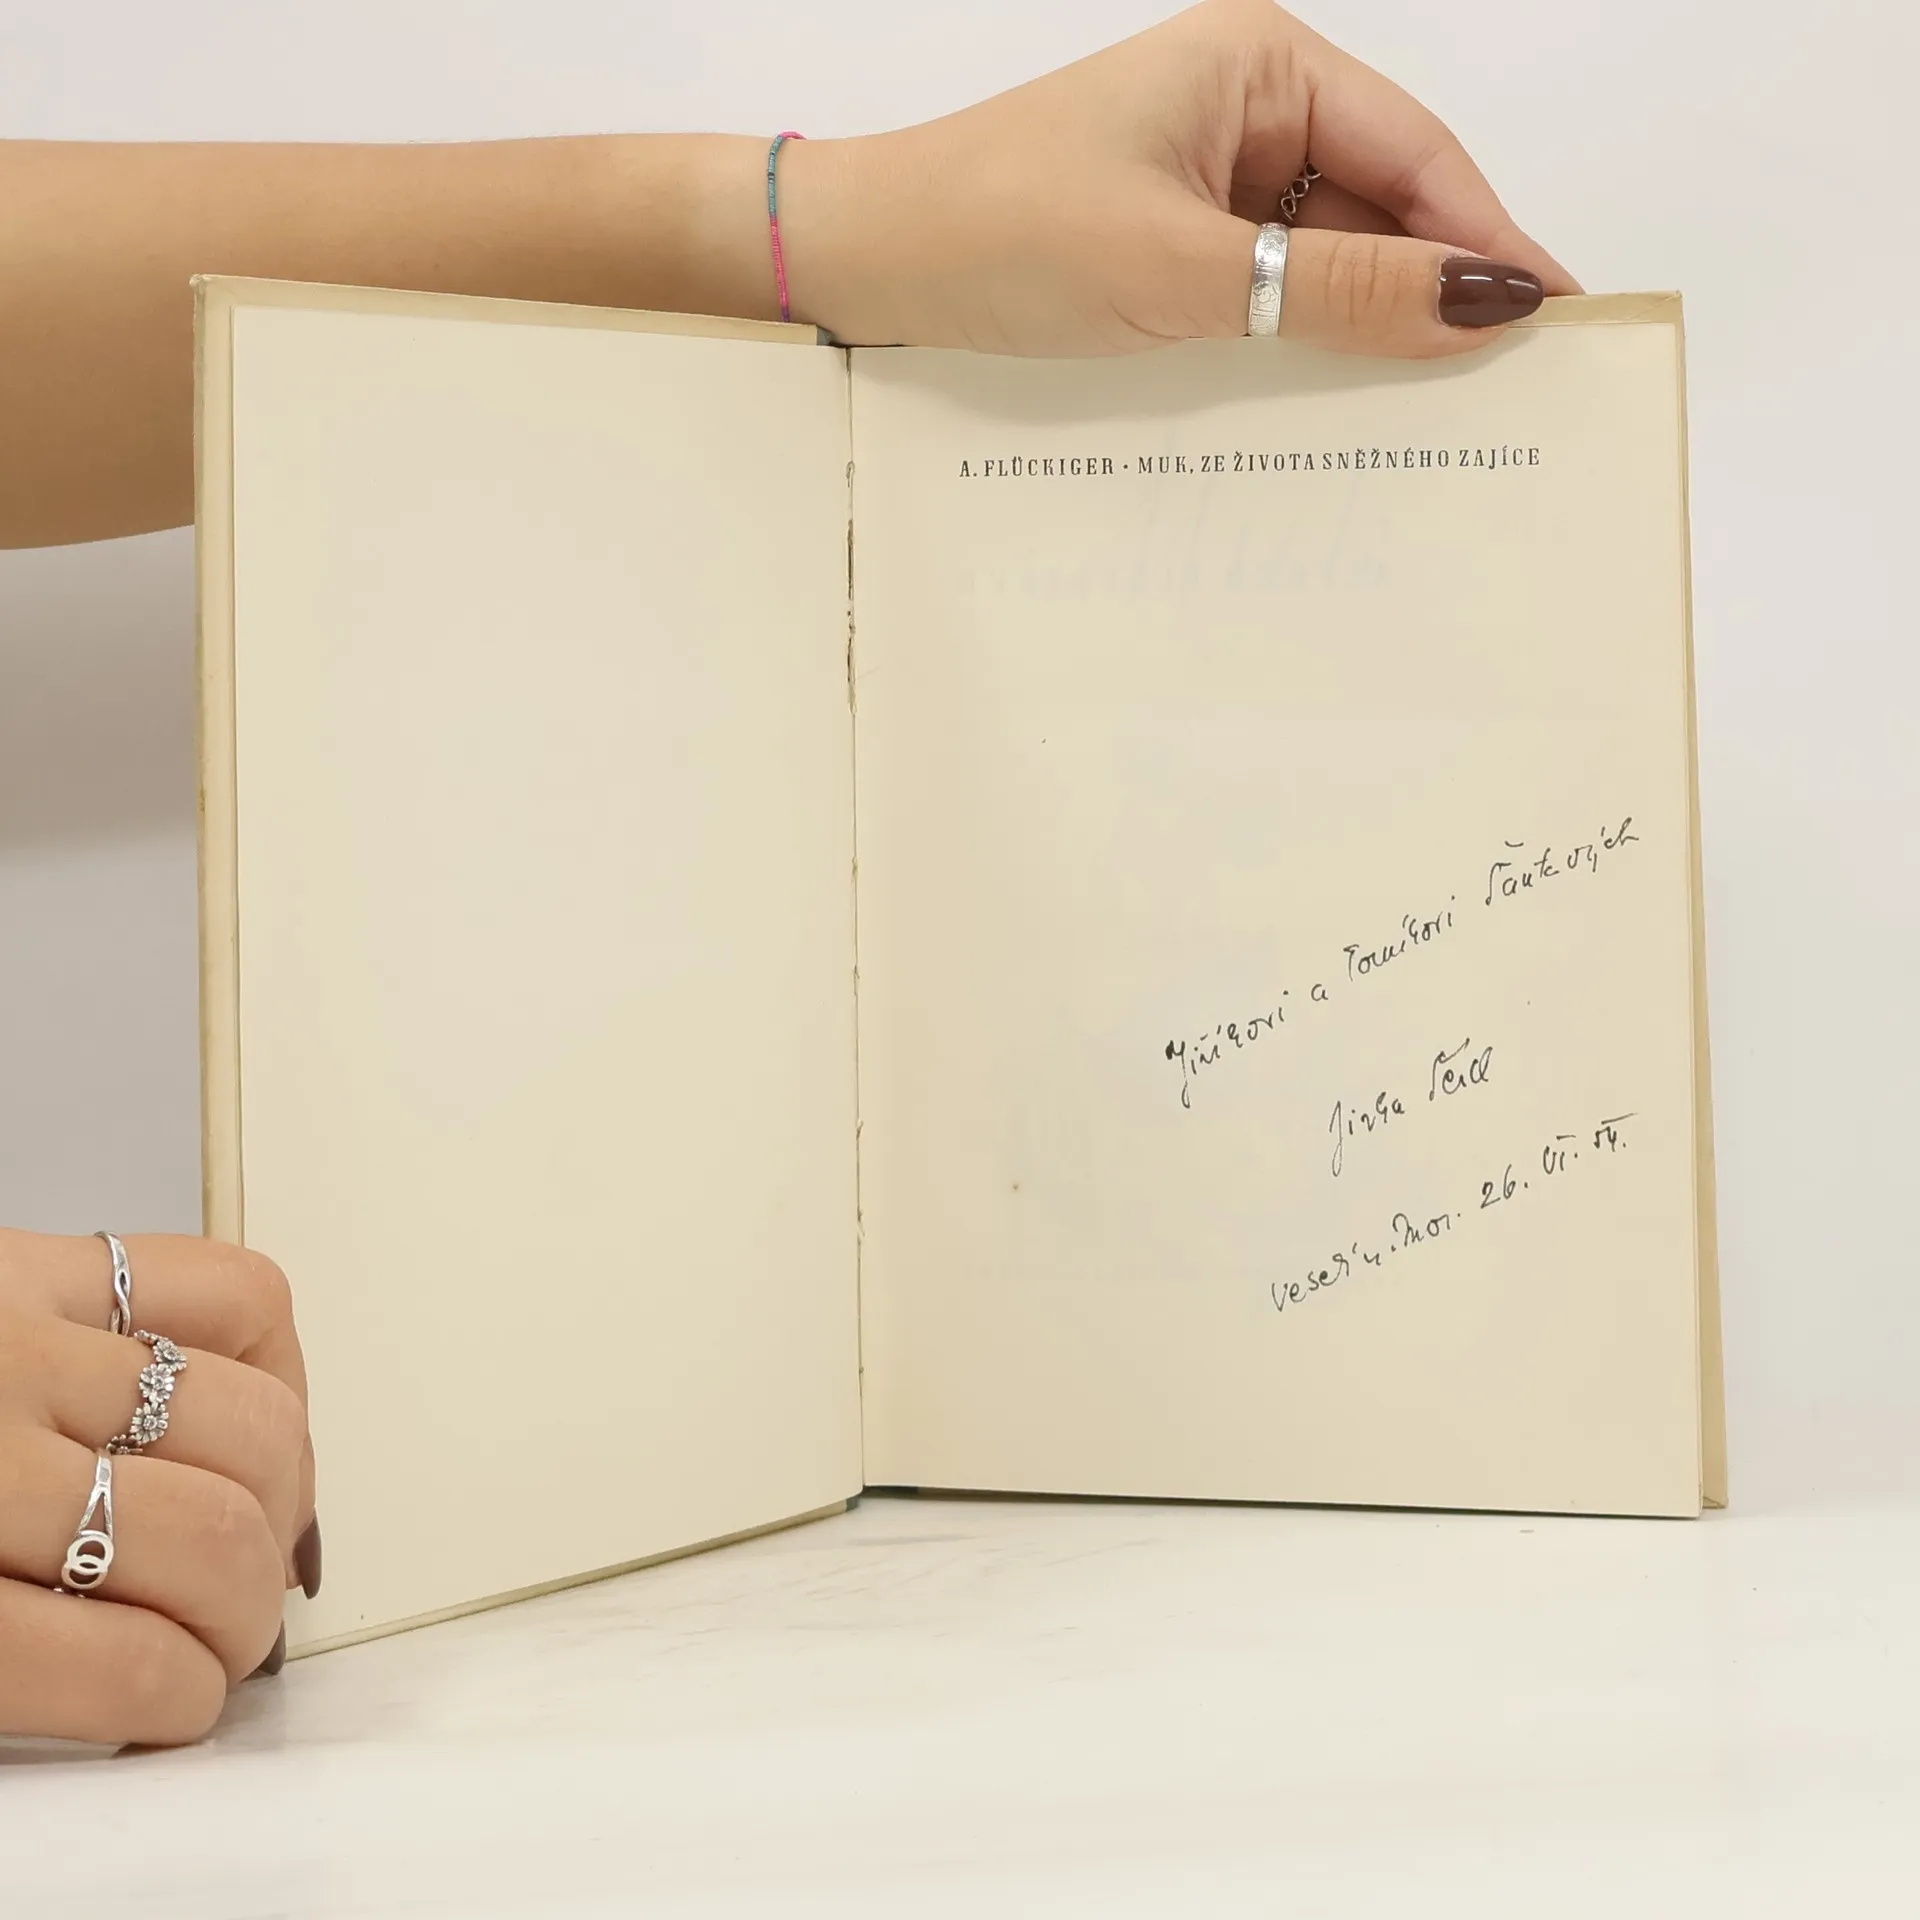 A. FLÜCKIGER · MUK, ZE ŽIVOTA SNĚŽNÉHO ZAJÍCE
Jiříkovi a Tomíkovi
Jirka
Veselí n. Mor. 26. VI. 54.